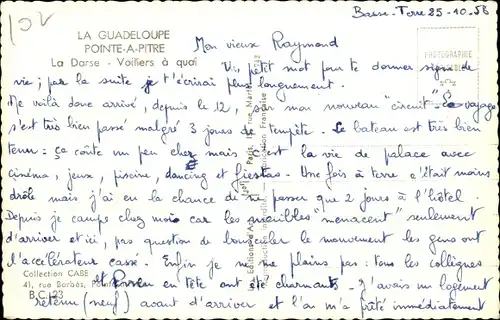 102
Basse-Terre 25-10-56
LA GUADELOUPE
POINTE-A-PITRE
La Darse - Voiliers à quai
PHOTOGRAPHIE
Mon vieux Raymond
Un petit mot pour te donner signe de
vie ; par la suite je t'écrirai plus longuement.
Me voilà donc arrivé, depuis le 12, sur mon nouveau "circuit". Le voyage
s'est très bien passé malgré 3 jours de tempête. Le bateau est très bien
tenu : ça coûte un peu cher mais c'est la vie de palace avec
cinéma, jeux, piscine, dancing et fiestas. Une fois à terre c'était moins
drôle mais j'ai eu la chance de ne passer que 2 jours à l'hôtel.
Depuis je campe chez moi car les meubles "menacent" seulement
d'arriver et ici, pas question de bousculer le mouvement les gens ont
l'accélérateur cassé. Enfin je ne me plains pas : tous les collègues
Collection CABE
41, rue Barbès, Pointe
et en tête ont été charmants. J'avais un logement
B.C. 23
retenu (neuf) avant d'arriver et l'on m'a prêté immédiatement